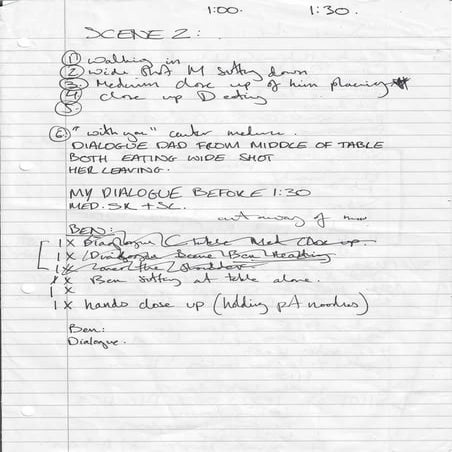 1:00. 1:30.
SCENE 2:
① walking in
② wide shot M sitting down
③ Medium close up of him placing
④ close up D eating
⑤
⑥ "with you" center medium.
DIALOGUE DAD FROM MIDDLE OF TABLE
BOTH EATING WIDE SHOT
HER LEAVING.
MY DIALOGUE BEFORE 1:30
MED. SR + SL.
out away of
BEN:
1 X Dialogue Table Med Close up
1 X Dialogue Scene Ben
1 X over the shoulder
X Ben sitting at table alone.
1 X
1 X hands close up (holding noodles)
Ben:
Dialogue.